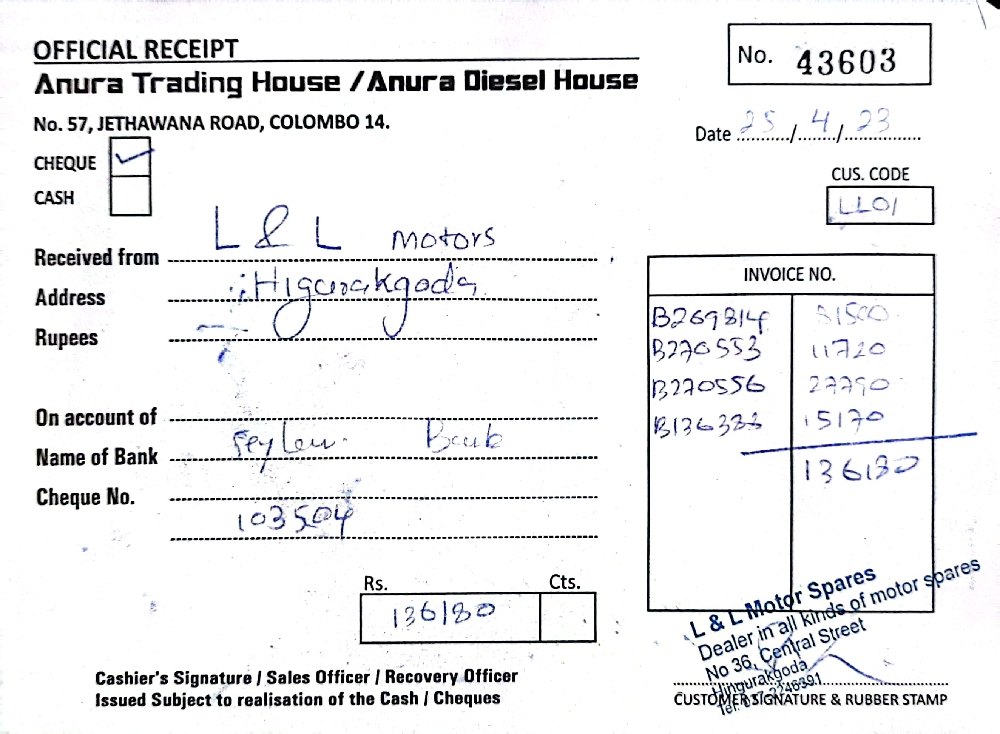 OFFICIAL RECEIPT
No. 43603
Anura Trading House / Anura Diesel House
No. 57, JETHAWANA ROAD, COLOMBO 14.
Date 25 / 4 / 23
CHEQUE ✓
CASH
CUS. CODE
LL01
Received from L & L Motors
Address Higurakgoda
Rupees
On account of
Name of Bank Seylan Bank
Cheque No.
103504
INVOICE NO.
B269814 81500
B270553 11720
B270556 27790
B136333 15170
136180
Rs. Cts.
136180
L & L Motor Spares
Dealer in all kinds of motor spares
No 36, Central Street
Hingurakgoda
CUSTOMER SIGNATURE & RUBBER STAMP
Cashier's Signature / Sales Officer / Recovery Officer
Issued Subject to realisation of the Cash / Cheques